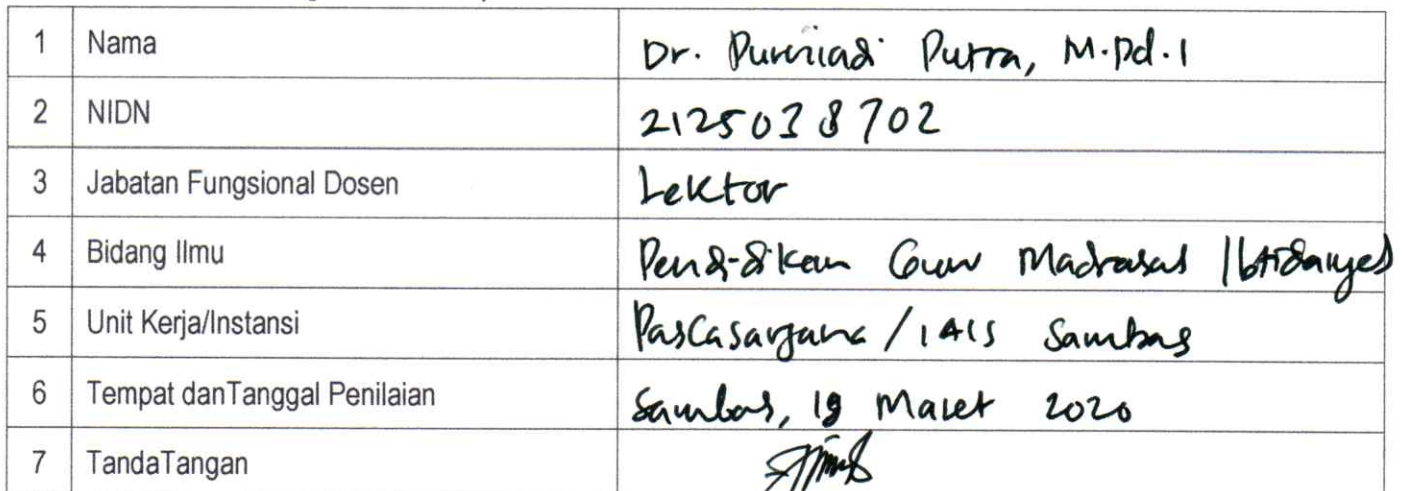 1 Nama Dr. Purniadi Putra, M.Pd.I
2 NIDN 2125038702
3 Jabatan Fungsional Dosen Lektor
4 Bidang Ilmu Pendidikan Guru Madrasah Ibtidaiyah
5 Unit Kerja/Instansi Pascasarjana / IAIS Sambas
6 Tempat danTanggal Penilaian Sambas, 19 Maret 2020
7 TandaTangan